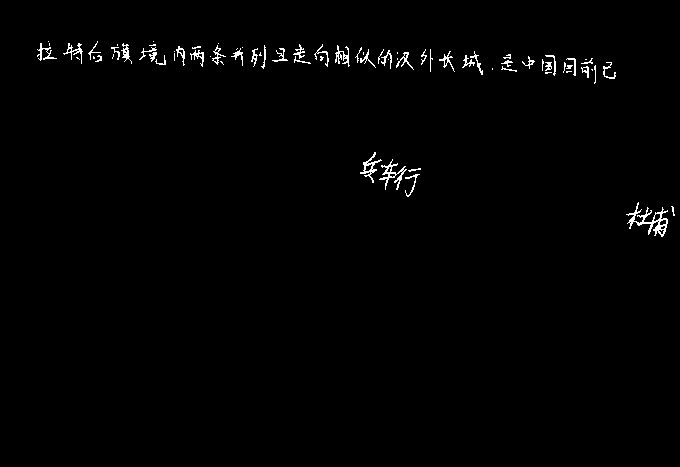 拉特后旗境内两条并列且走向相似的汉外长城.是中国目前已
兵车行
杜甫